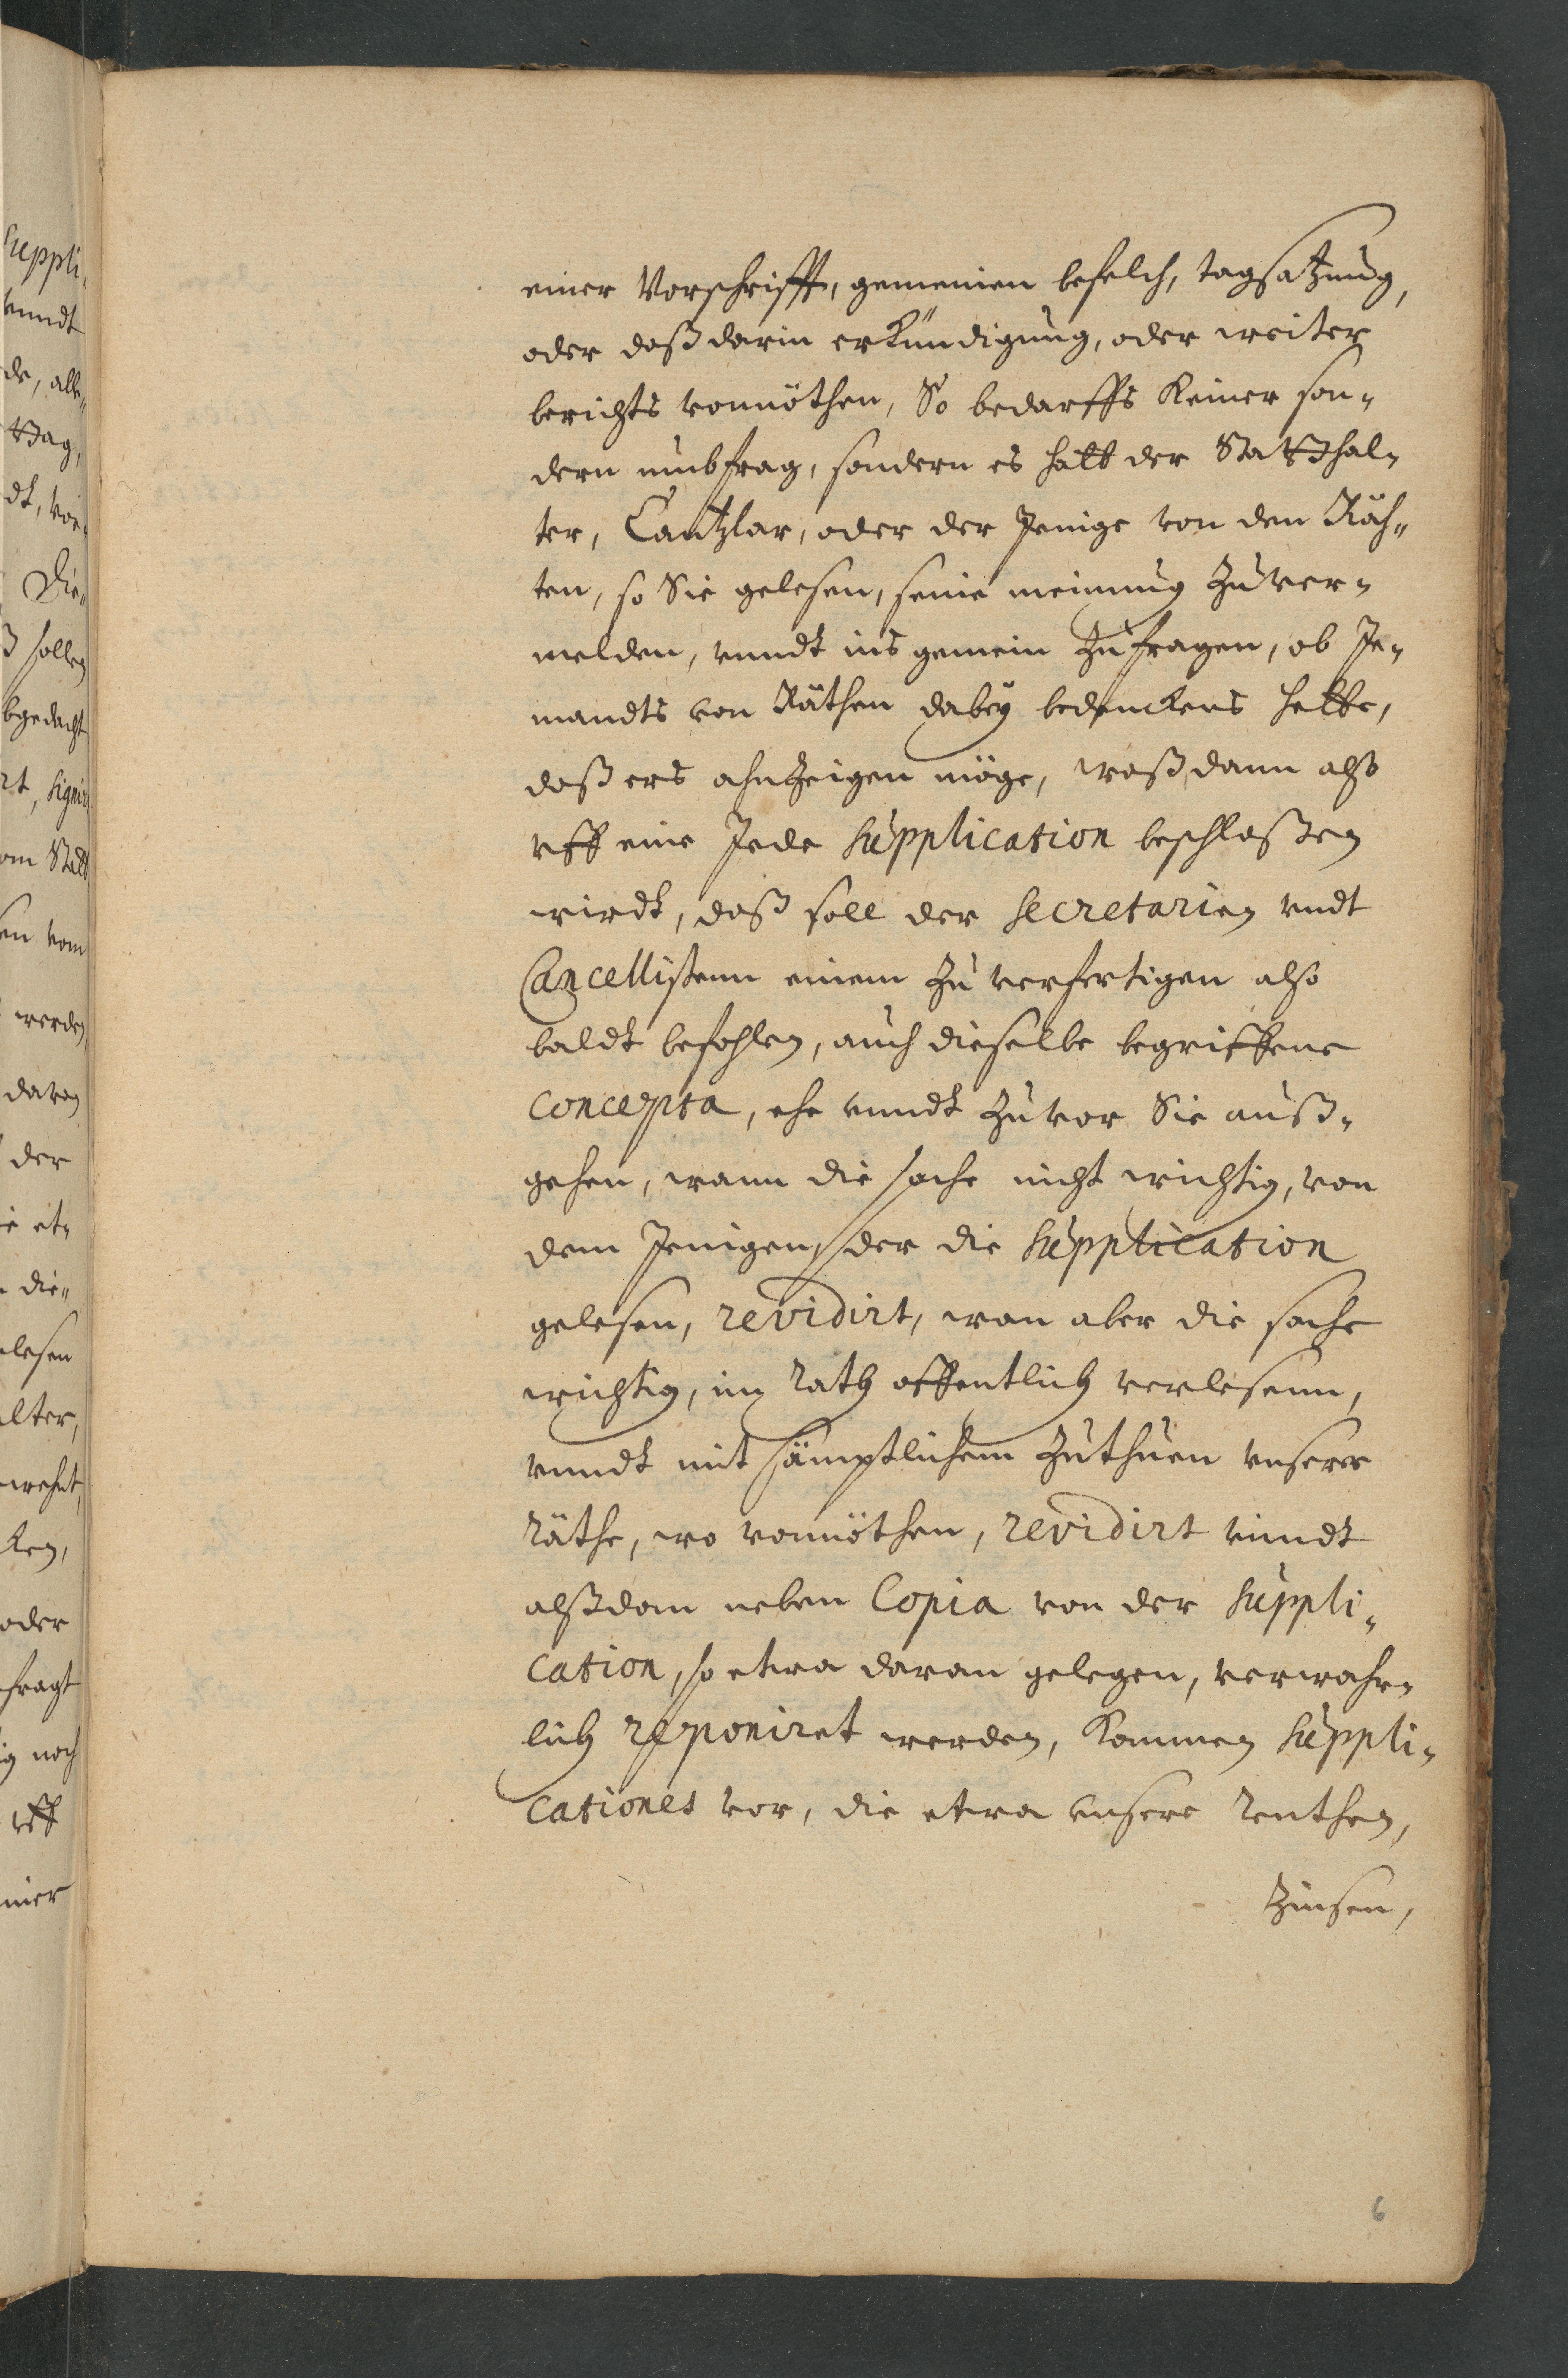 einer Vorschrifft, gemeinen befelch, tagsatzung,
oder daß darin erkündigung, oder weiter
berichts vonnöthen, So bedarffs keiner son„
dern umbfrag, sondern es hatt der Statthal„
ter, Cantzlar, oder der Jenige von den Räh„
ten, so Sie gelesen, seine meinung zu ver„
melden, unndt ins gemein zu fragen, ob Je„
mandts von Räthen dabey bedenckens hette,
daß ers ahnzeigen möge, waß dann also
uff eine Jede Supplication beschloßen
wirdt, daß soll der Secretarien undt
Cancellistenn einem zu verfertigen also
baldt befohlen, auch dieselbe begriffene
Concepta, ehe unndt zuvor Sie auß„
gehen, wann die sache nicht wichtig, von
dem Jenigen, der die Supplication
gelesen, revidirt, wan aber die sache
wichtig, im Rath offentlich verlesenn,
unndt mit sämptlichem zuthuen unserer
Räthe, wo vonnöthen, revidirt unndt
alßdan neben Copia von der Suppli„
cation, so etwa daran gelegen, verwahr„
lich reponiret werden, Kommen Suppli„
cationes vor, die etwa unsere Renthen,
Zinsen,
6